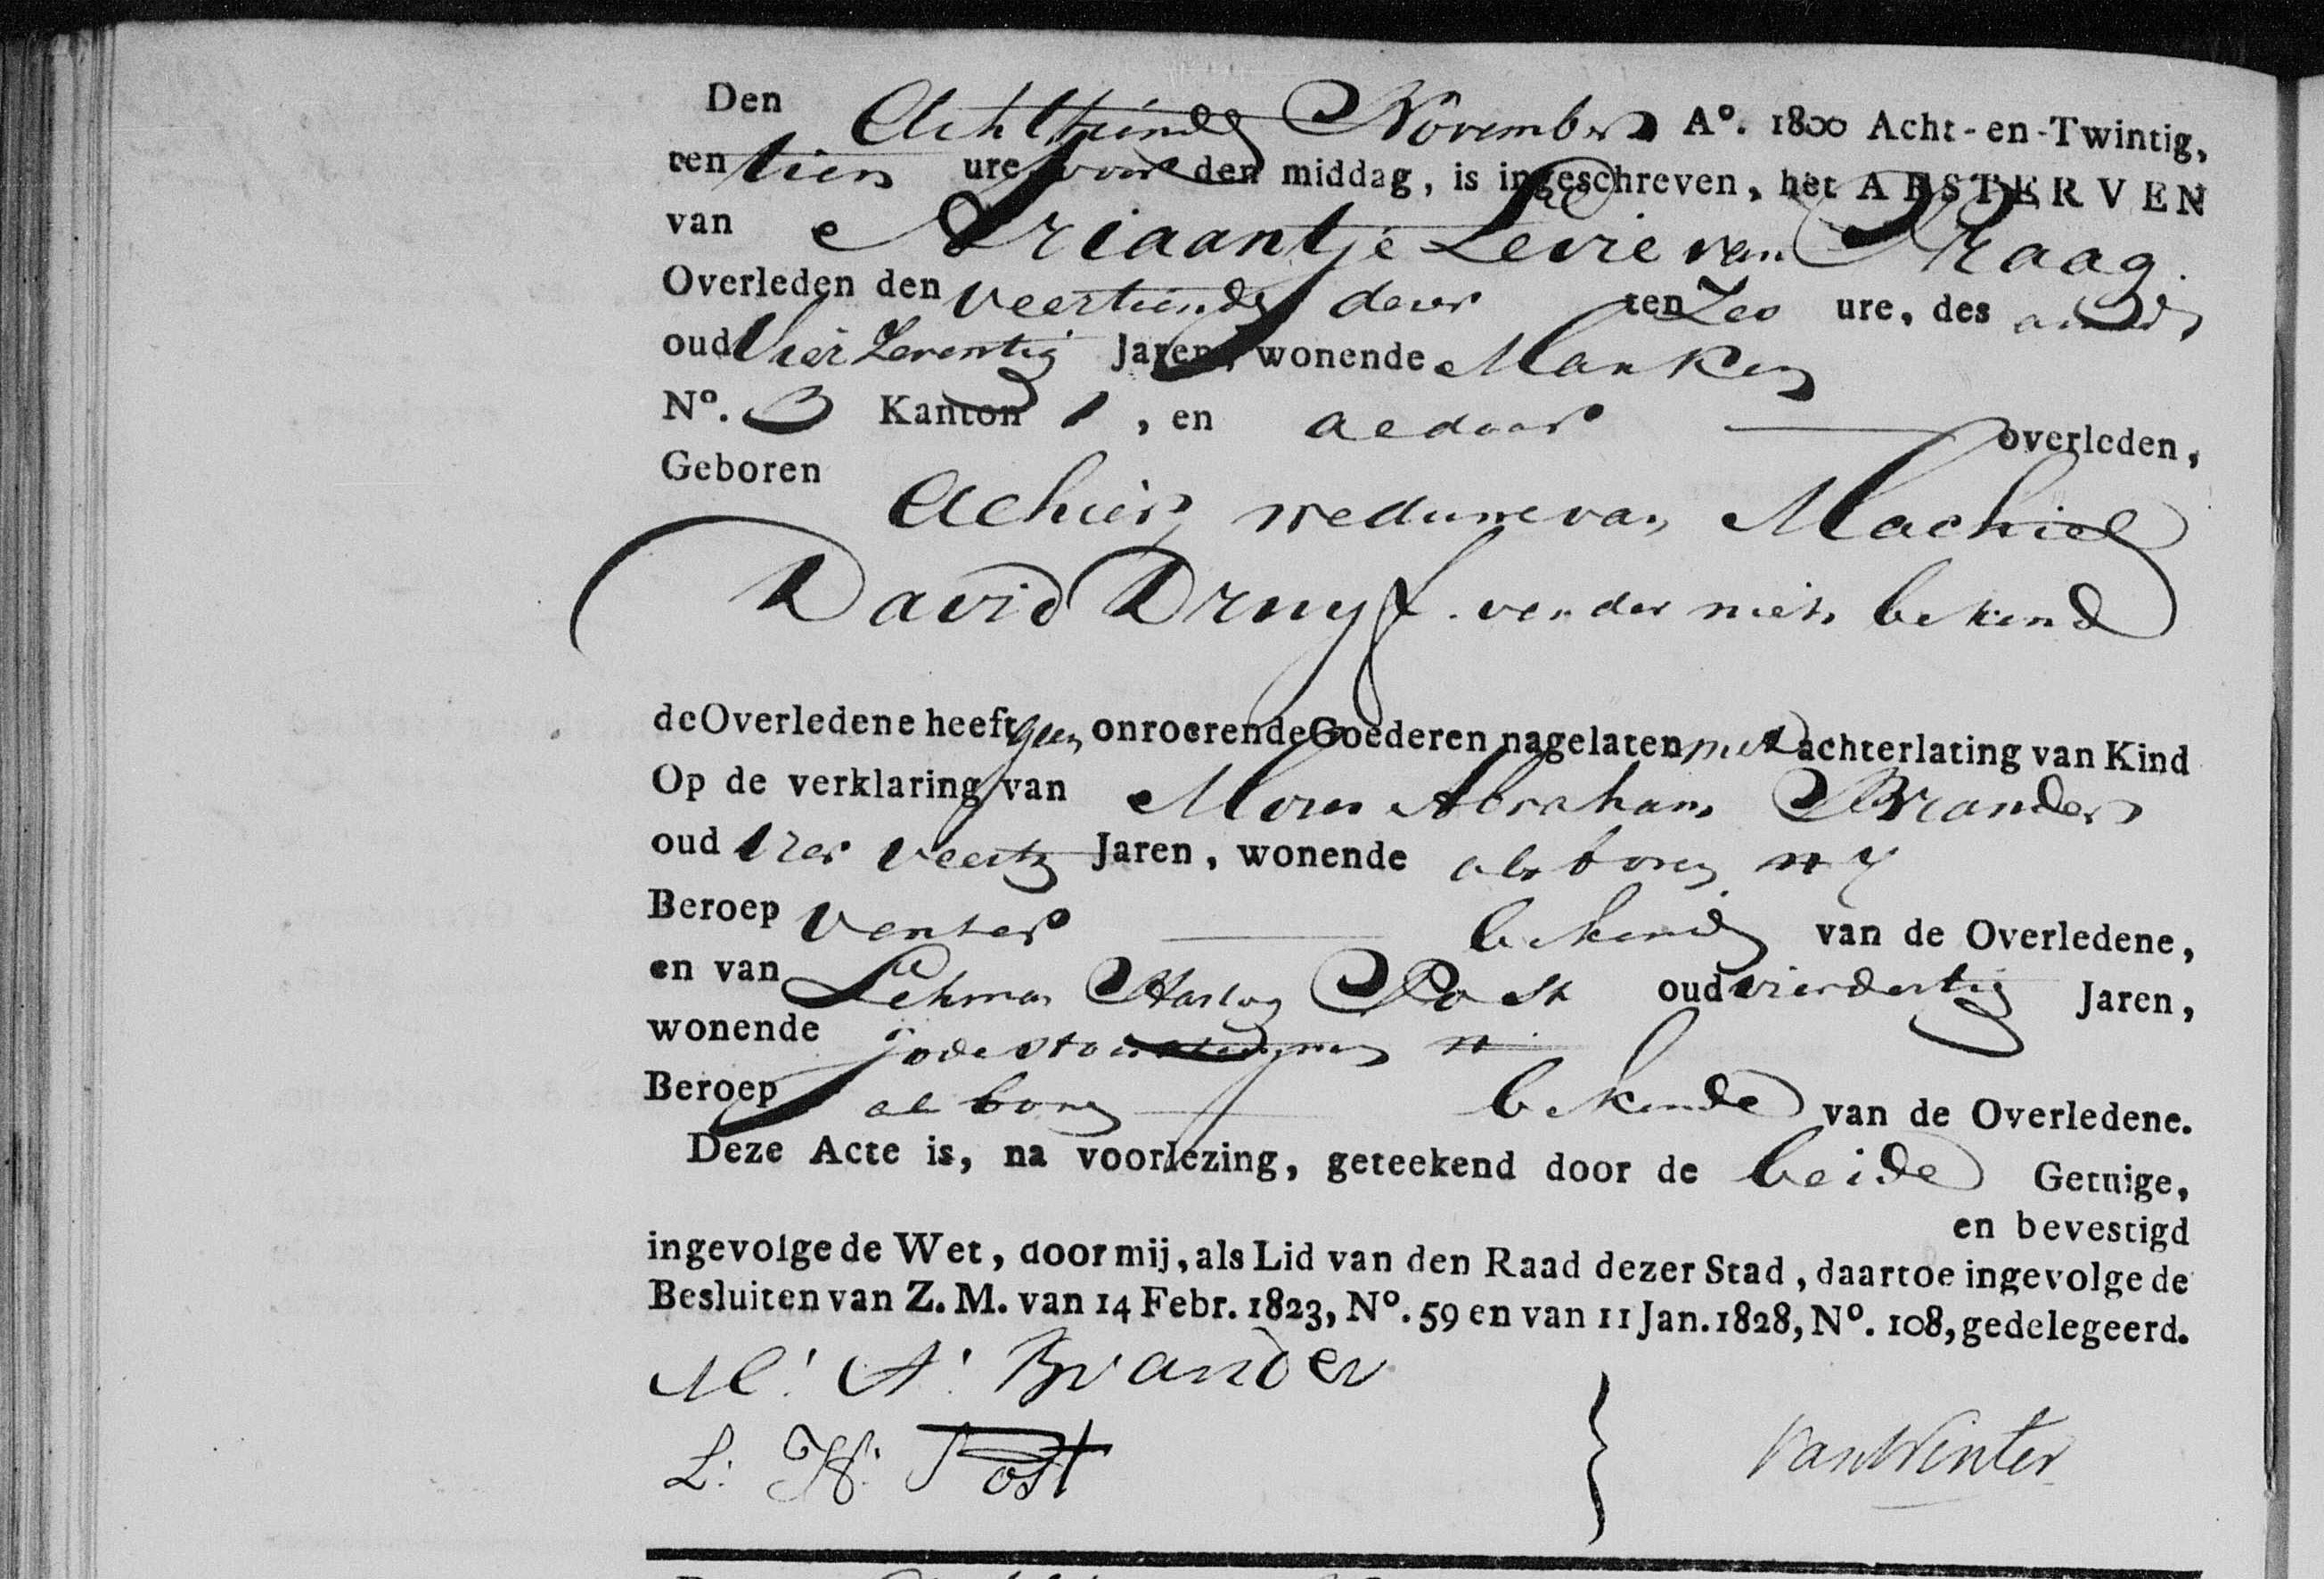 Den Achttiende November Aº. 1800 Acht-en-Twintig,
ten tien ure voor den middag, is ingeschreven, het ABSTERVEN
van Ariaantje Levie van Praag.
Overleden den veertiende dezer ten Zes ure, des avonds
oud Vier Zeventig Jaren, wonende Marken
Nº. 3 Kanton 1, en aldaar overleden,
Geboren Alhier, weduwe van Machiel
David Druyf. verder niet bekend
de Overledene heeft geen onroerende Goederen nagelaten met achterlating van Kind
Op de verklaring van Moses Abraham Brander
oud Veertig Jaren, wonende als boven
Beroep Venter bekende van de Overledene,
en van Lehman Hartog Post oud vierdertig Jaren,
wonende
Beroep als boven bekende van de Overledene.
Deze Acte is, na voorlezing, geteekend door de beide Getuige,
en bevestigd
ingevolge de Wet, door mij, als Lid van den Raad dezer Stad, daartoe ingevolge de
Besluiten van Z. M. van 14 Febr. 1823, Nº. 59 en van 11 Jan. 1828, Nº. 108, gedelegeerd.
M. A. Brander
L. H. Post
Van Winter